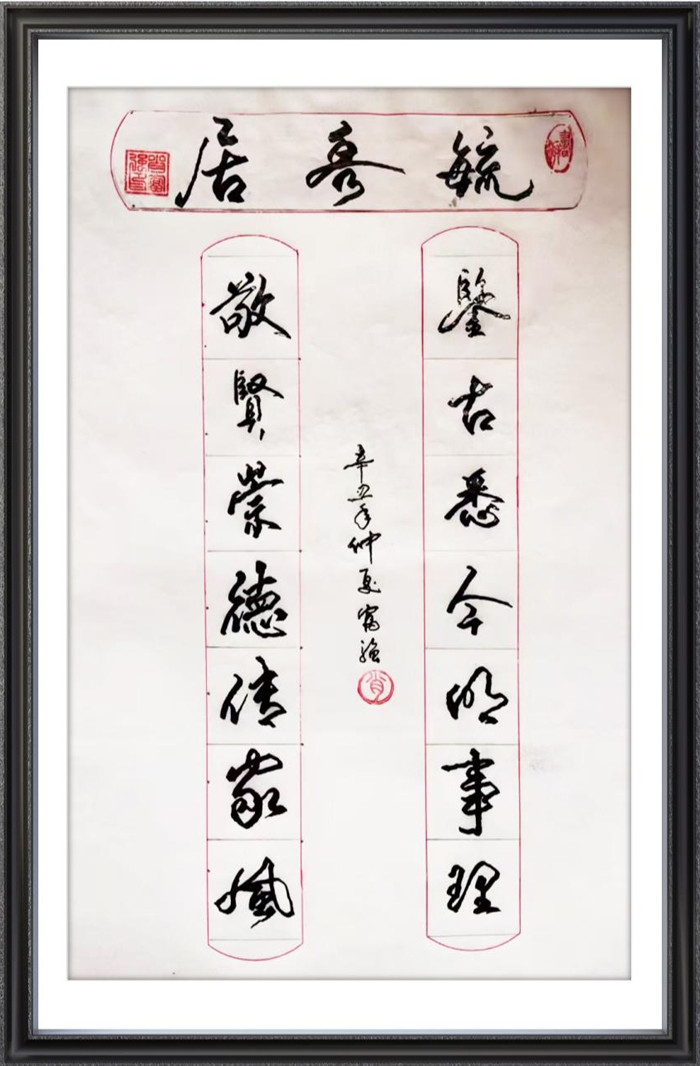 毓秀居
鑒古悉今明事理
辛丑年仲夏富強
肖
敬賢崇德傳家風